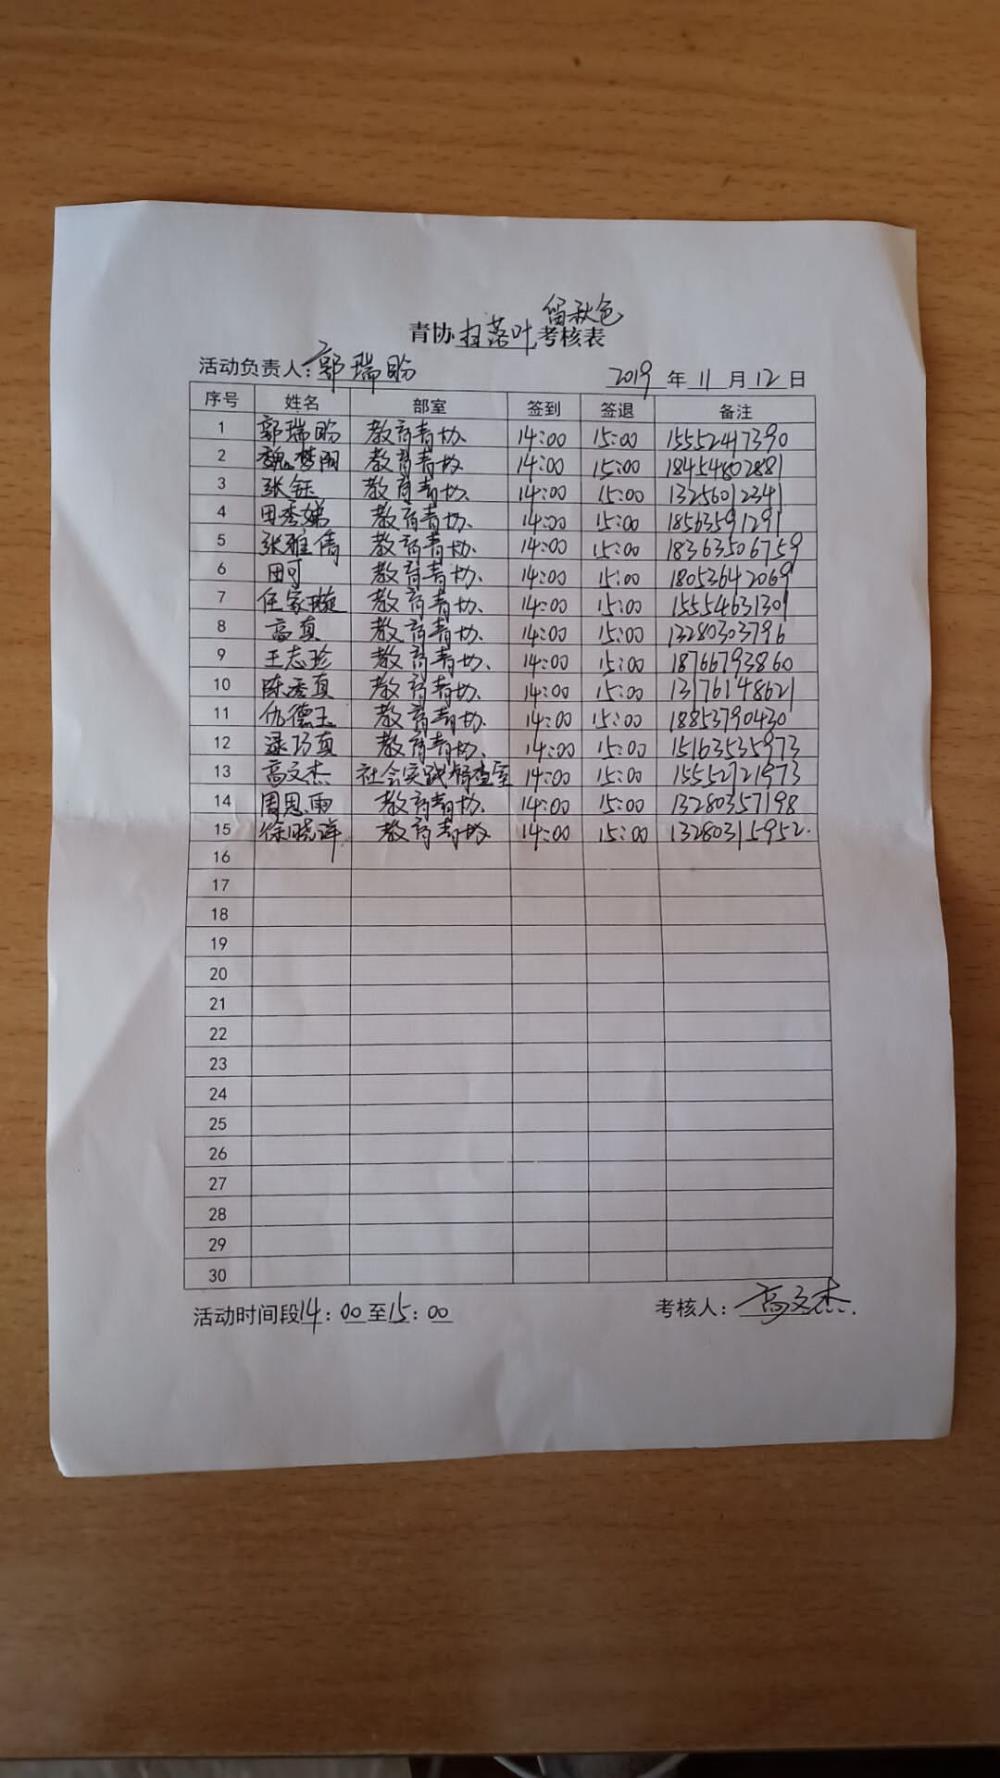 留秋色
青协扫落叶考核表
活动负责人:郭瑞盼 2019年11月12日
序号 姓名 部室 签到 签退 备注
1 郭瑞盼 教育青协 14:00 15:00 15552417390
2 魏梦阁 教育青协 14:00 15:00 18454802881
3 张钰 教育青协 14:00 15:00 13256012341
4 田秀娣 教育青协 14:00 15:00 18563591291
5 张雅倩 教育青协 14:00 15:00 18363506759
6 田可 教育青协 14:00 15:00 18053642069
7 任家璇 教育青协 14:00 15:00 15554631301
8 高真 教育青协 14:00 15:00 13280303796
9 王志珍 教育青协 14:00 15:00 18766793860
10 陈秀真 教育青协 14:00 15:00 13176148621
11 仇德玉 教育青协 14:00 15:00 18853790430
12 巧真 教育青协 14:00 15:00 15163535973
13 高文杰 社会实践督查室 14:00 15:00 15552721973
14 周思雨 教育青协 14:00 15:00 13280357198
15 徐晓 教育青协 14:00 15:00 13280315952
16
17
18
19
20
21
22
23
24
25
26
27
28
29
30
活动时间段14:00至15:00 考核人:高文杰